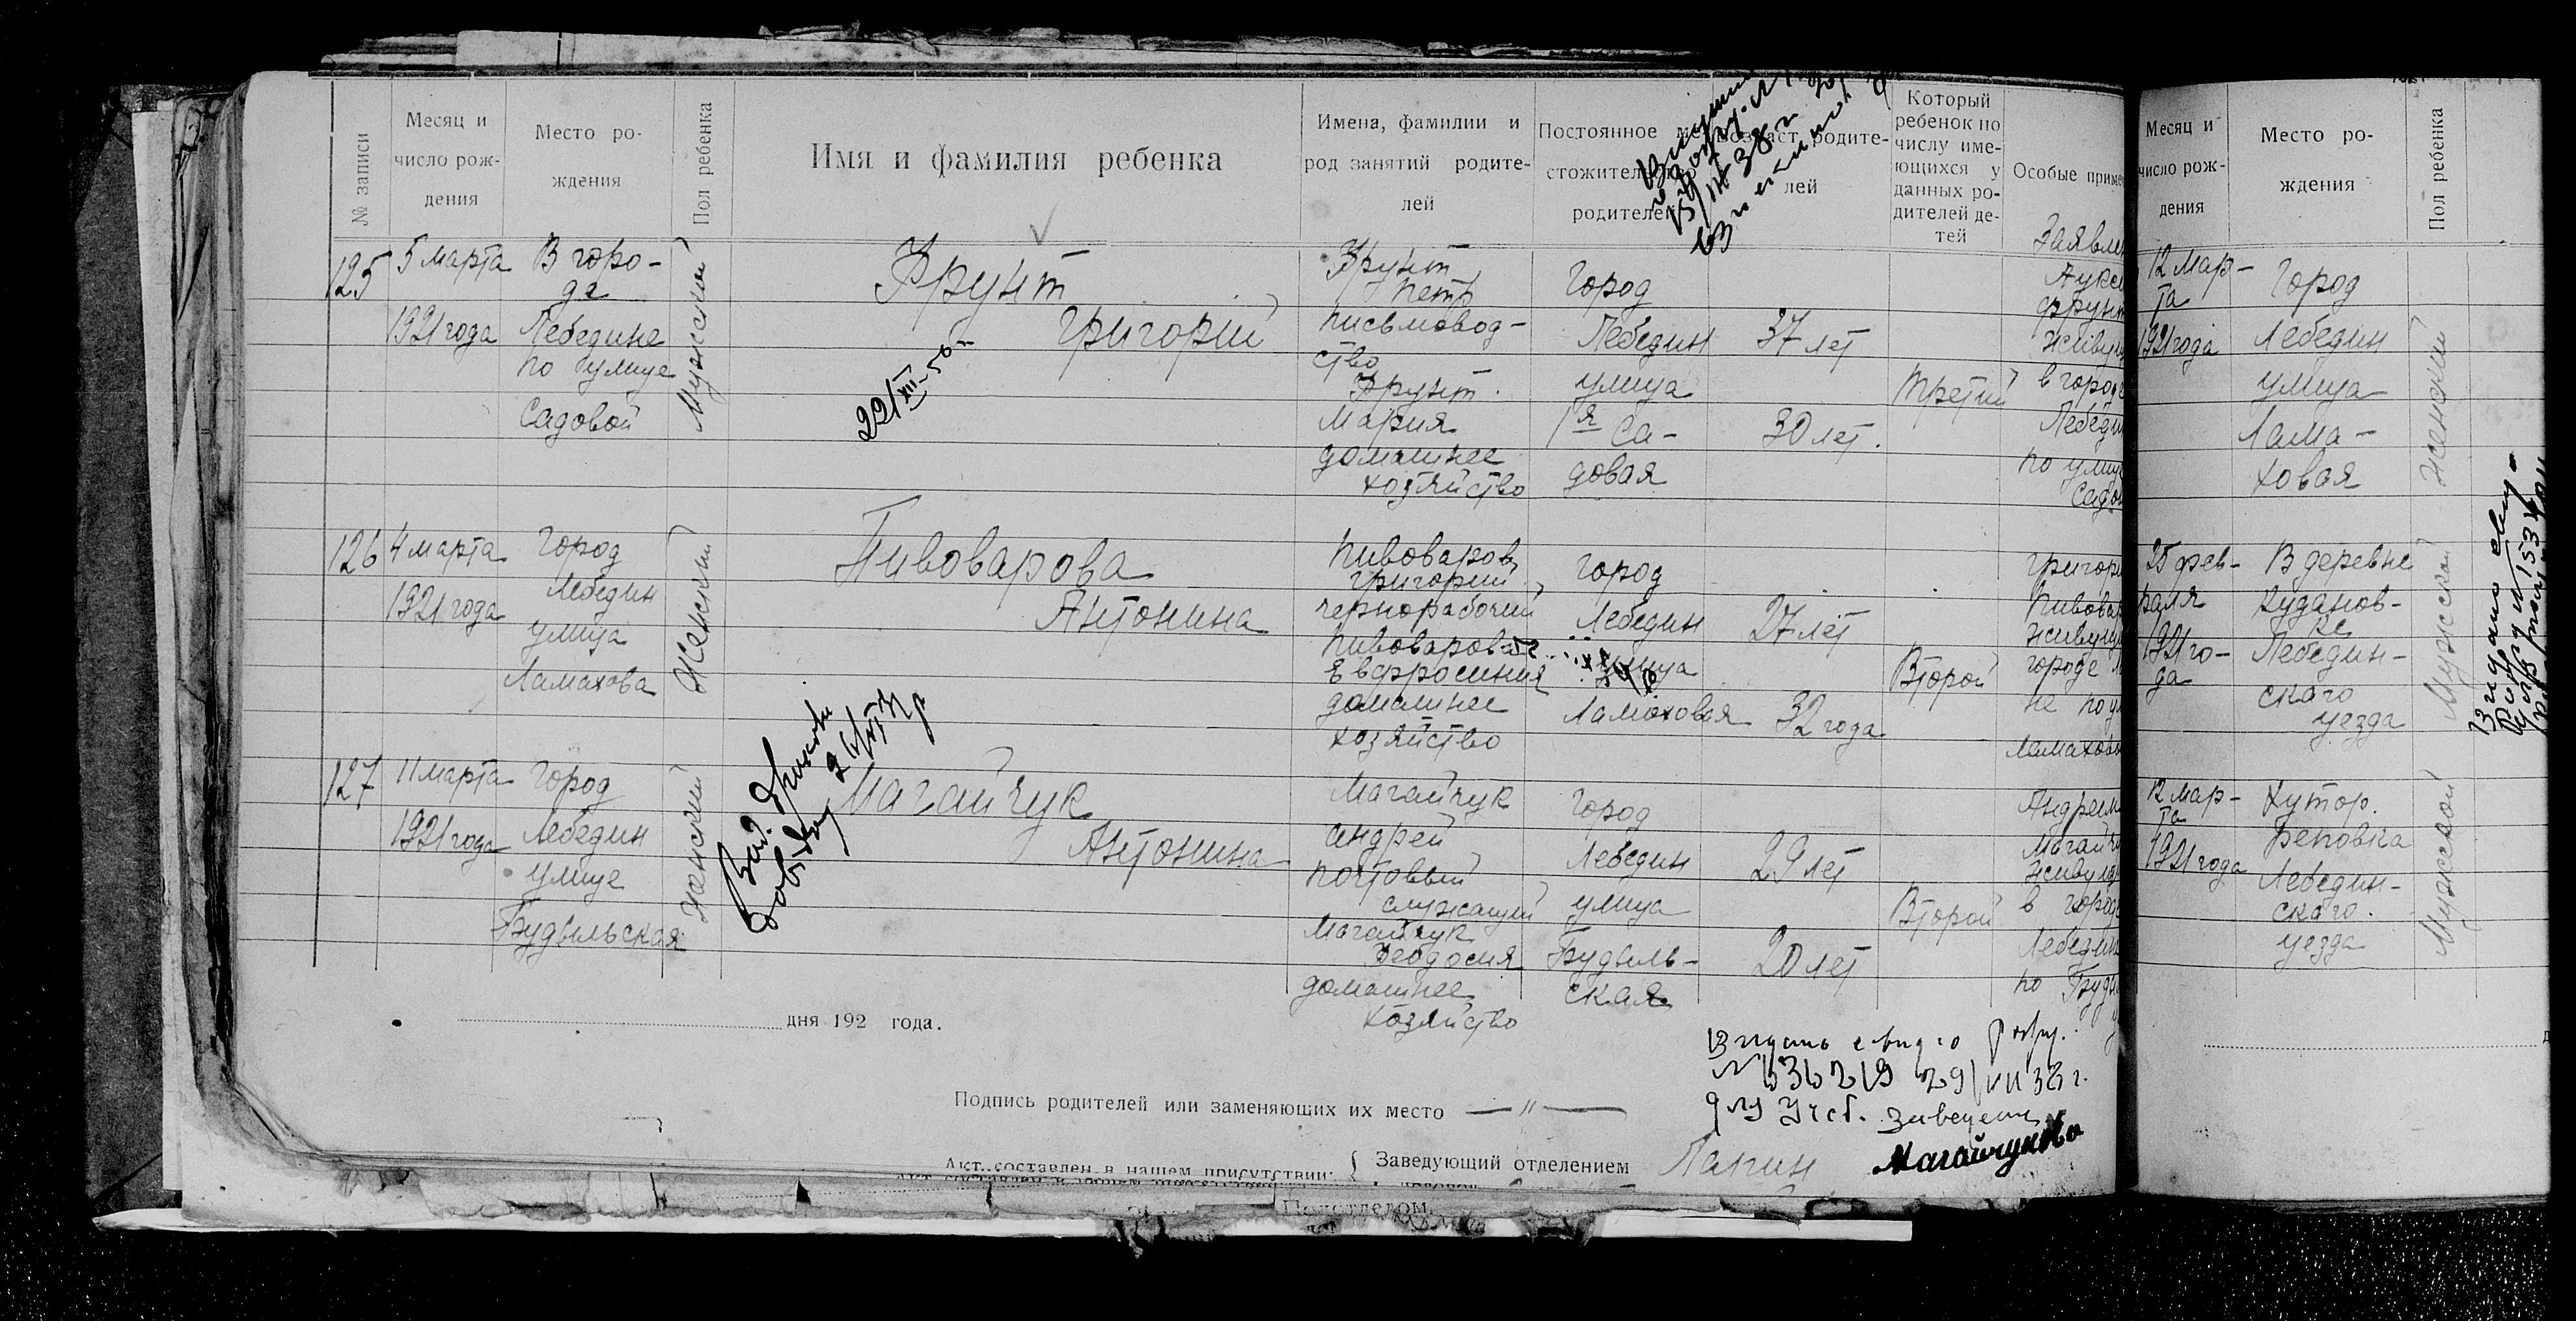 № записи
Месяц и число рождения
Место рождения
Пол ребенка
Имя и фамилия ребенка
Имена, фамилии и род занятий родителей
Постоянное
стожительство
родителей
родителей
Который ребенок по числу имеющихся у данных родителей детей
Особые приме
125
5 марта
1921 года
В горо-
де
Лебедине
по улице
Садовой
Мужской
Фрунт
Григорий
22/XII-50 г.
Фрунт
Петр
письмовод-
ство
Фрунт
Мария
домашнее
хозяйство
Город
Лебедин
улица
1я Са-
довая
37 лет
30 лет.
Третий
Заявле
фрунт
живущ
в городе
Лебеди
по улице
Садов
126
4 марта
1921 года
Город
Лебедин
улица
Ламахова
Женский
Пивоварова
Антонина
Пивоваров
Григорий
чернорабочий
Пивоварова
Евфросиния
домашнее
хозяйство
Город
Лебедин
улица
Ламаховая
27 лет
32 года
Второй
Григори
Пивовар
живущ
городе
не по ул
Ламахов
127
11 марта
1921 года
Город
Лебедин
улице
Будыльская
Женский
Магайчук
Антонина
Магайчук
Андрей
почтовый
служащий
Магайчук
Феодосия
домашнее
хозяйство
Город
Лебедин
улица
Будыль-
ская
29 лет
20 лет
Второй
Андреем
Магайчу
живущ
в городе
Лебедин
по Буды
дня 192 года.
Подпись родителей или заменяющих их место — " —
№ 636219 29/VII 38 г.
Магайчукова
Акт составлен в нашем присутствии: { Заведующий отделением
Лапин
Подотделом
Месяц и число рождения
Место рождения
Пол ребенка
12 мар-
та
1921 года
Город
Лебедин
улица
Лама-
ховая
Женский
25 фев-
раля
1921 го-
да
В деревне
Кудановке
Лебедин-
скаго
уезда
Мужской
12 мар-
та
1921 года
Хутор.
Реповка
Лебедин-
скаго.
уезда
Мужской